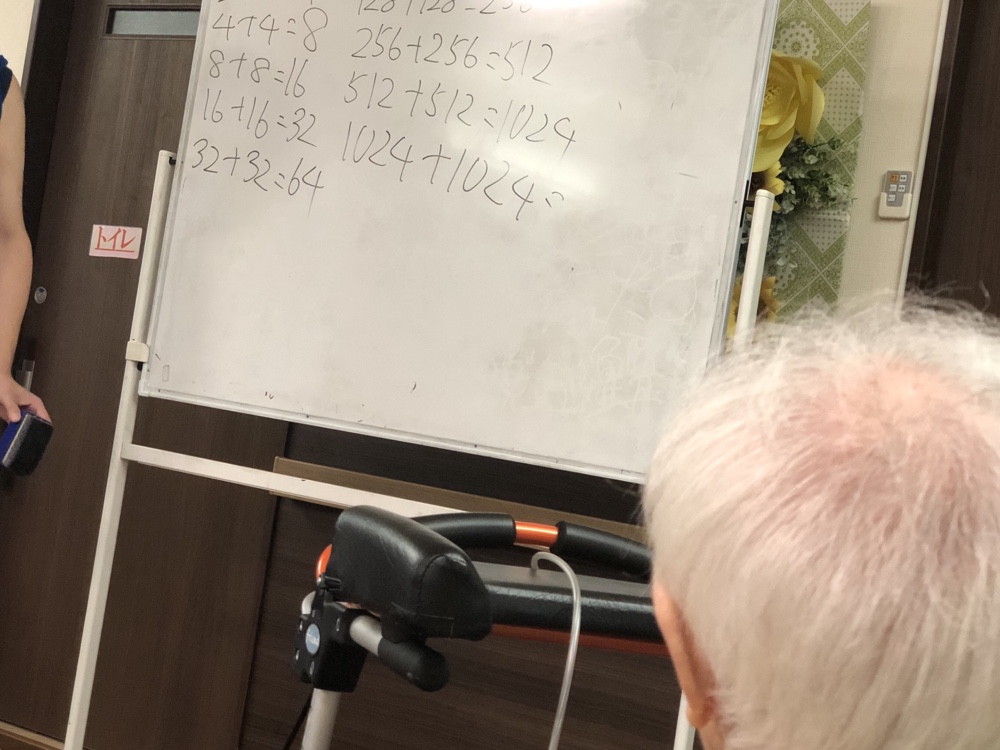 4+4=8
8+8=16
16+16=32
32+32=64
128+128=256
256+256=512
512+512=1024
1024+1024=
トイレ